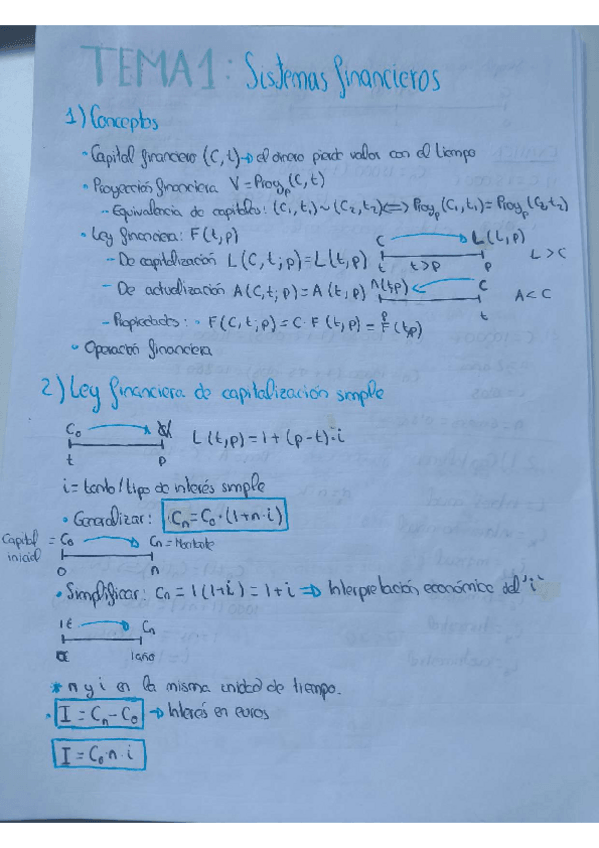 TEMA 1: Sistemas financieros
1) Conceptos
• Capital financiero (C, t) → el dinero pierde valor con el tiempo
• Proyección financiera V = Proy_p (C, t)
- Equivalencia de capitales: (C₁, t₁) ~ (C₂, t₂) ⟺ Proy_p (C₁, t₁) = Proy_p (C₂, t₂)
• Ley financiera: F (t, p)
- De capitalización L (C, t; p) = L (t, p)
C L (t, p)
t t > p p
L > C
- De actualización A (C, t; p) = A (t, p)
A (t, p) C
p t
A < C
- Propiedades: • F (C, t; p) = C · F (t, p) = F (t, p)
• Operación financiera
2) Ley financiera de capitalización simple
C₀
t p
L (t, p) = 1 + (p - t) · i
i = tanto / tipo de interés simple
• Generalizar: Cₙ = C₀ · (1 + n · i)
Capital inicial = C₀ Cₙ = Montante
0 n
• Simplificar: Cₙ = 1 (1 + i) = 1 + i ⇒ Interpretación económica del "i"
1€ Cₙ
1 año
* n y i en la misma unidad de tiempo.
• I = Cₙ - C₀ → Interés en euros
I = C₀ · n · i